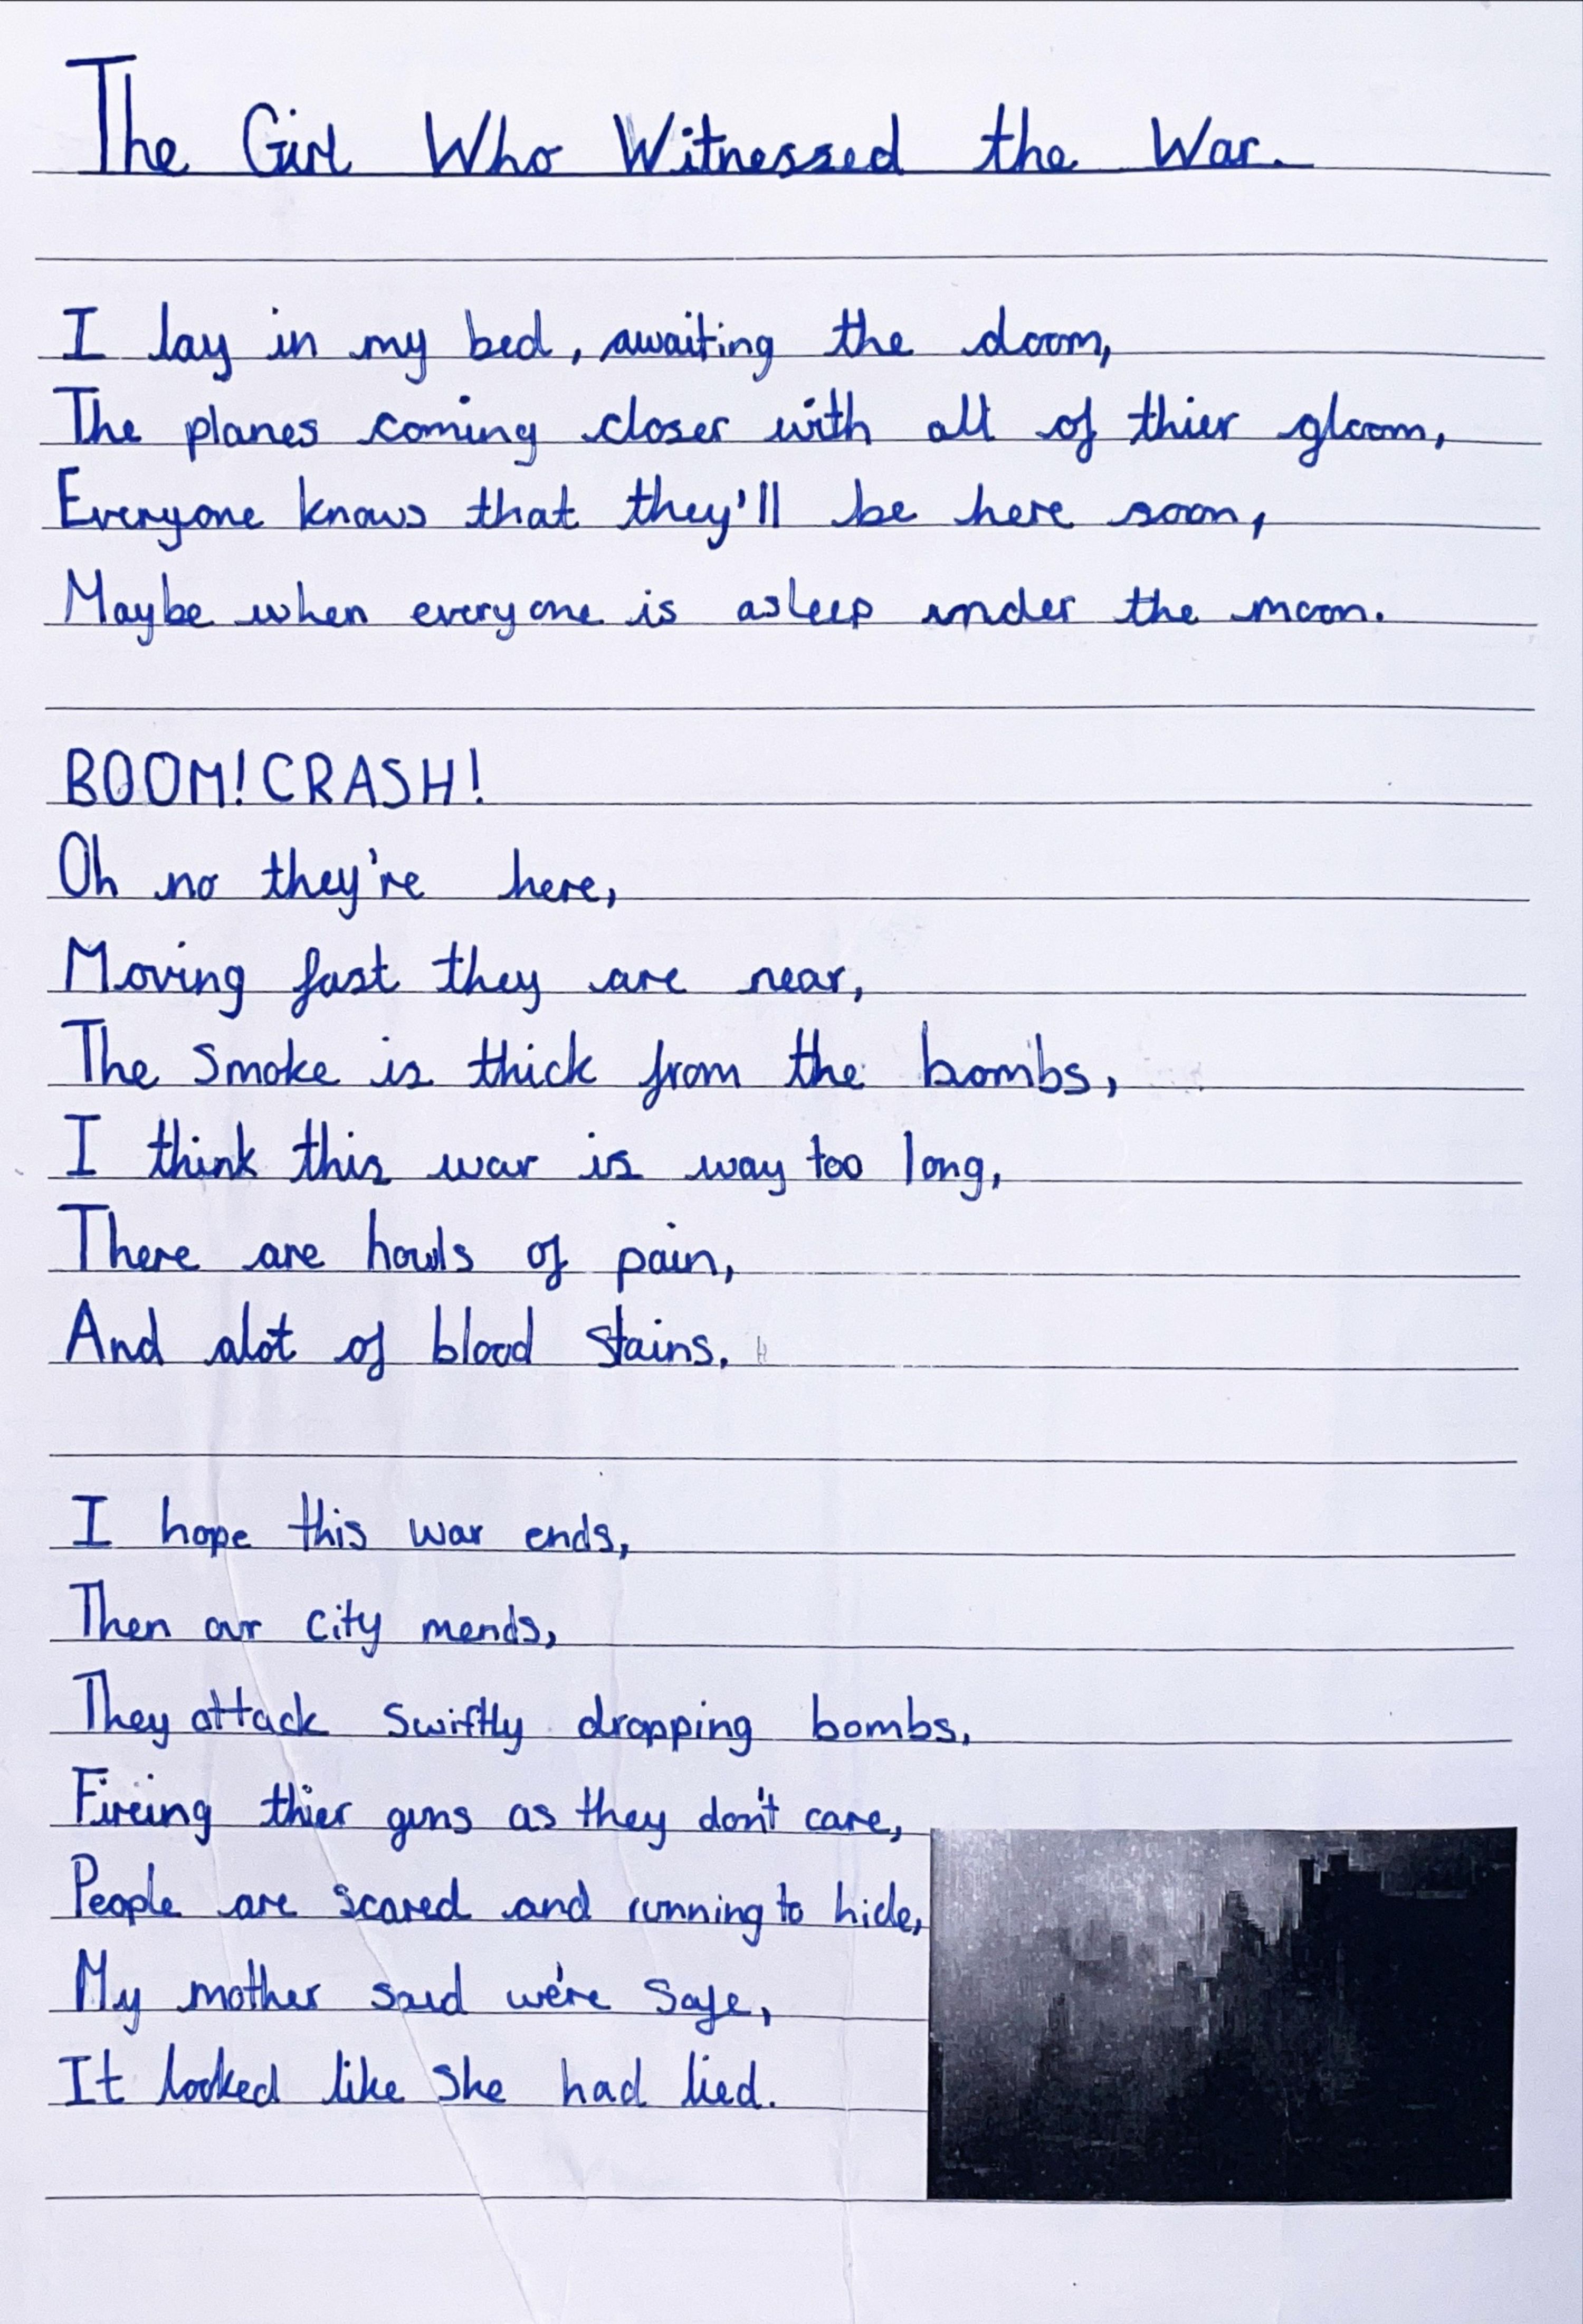 The Girl Who Witnessed the War.
I lay in my bed, awaiting the doom,
The planes coming closer with all of thier gloom,
Everyone knows that they'll be here soon,
Maybe when everyone is asleep under the moon.
BOOM! CRASH!
Oh no they're here,
Moving fast they are near,
The smoke is thick from the bombs,
I think this war is way too long,
There are howls of pain,
And alot of blood stains.
I hope this war ends,
Then our city mends,
They attack swiftly dropping bombs,
Fireing thier guns as they don't care,
People are scared and running to hide,
My mother said we're safe,
It looked like she had lied.